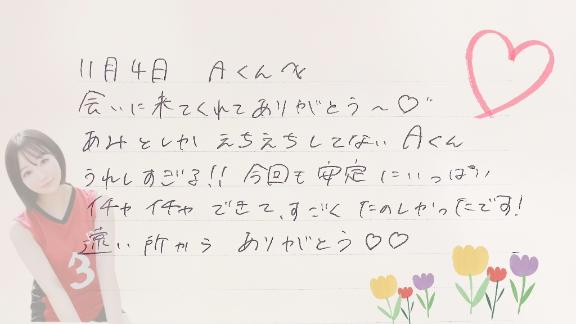 11月4日 Aくんへ
会いに来てくれてありがとう～♡
あみとしか えちえちしてない Aくん
うれしすごる!! 今回も安定にいっぱい
イチャイチャできて、すごくたのしかったです!
遠い所から ありがとう♡♡
3